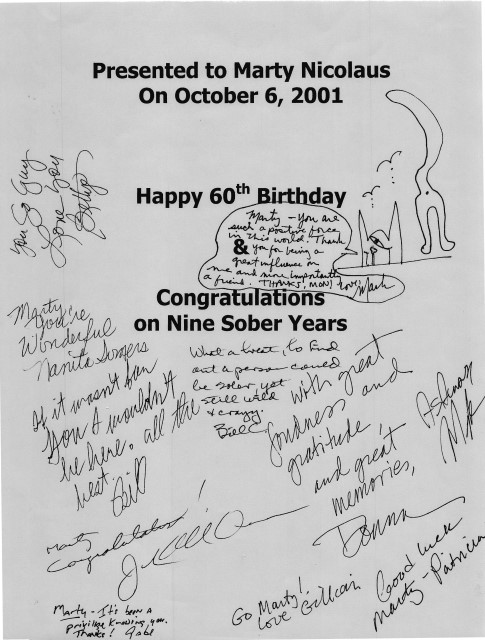 Presented to Marty Nicolaus
On October 6, 2001
You Go Guy
Love You
Happy 60th Birthday
&
Marty - You are
such a positive force
in this world. Thank
you for being a
great influence on
me and more importantly
a friend. THANKS, MON! Love,
Mark
Congratulations
on Nine Sober Years
Marty
You're
Wonderful
Nanita
What a treat, to find
out a person could
be sober, yet
still wild
& crazy.
Bill C
If it wasn't for
you I wouldn't
be here. all the
best.
Bill
with great
fondness and
gratitude,
and great
memories,
Donna
Marty
Congratulations!
Marty - It's been a
privilege knowing you.
Thanks! Gabe
Go Marty!
Love Gillian
Good Luck
Marty - Patricia